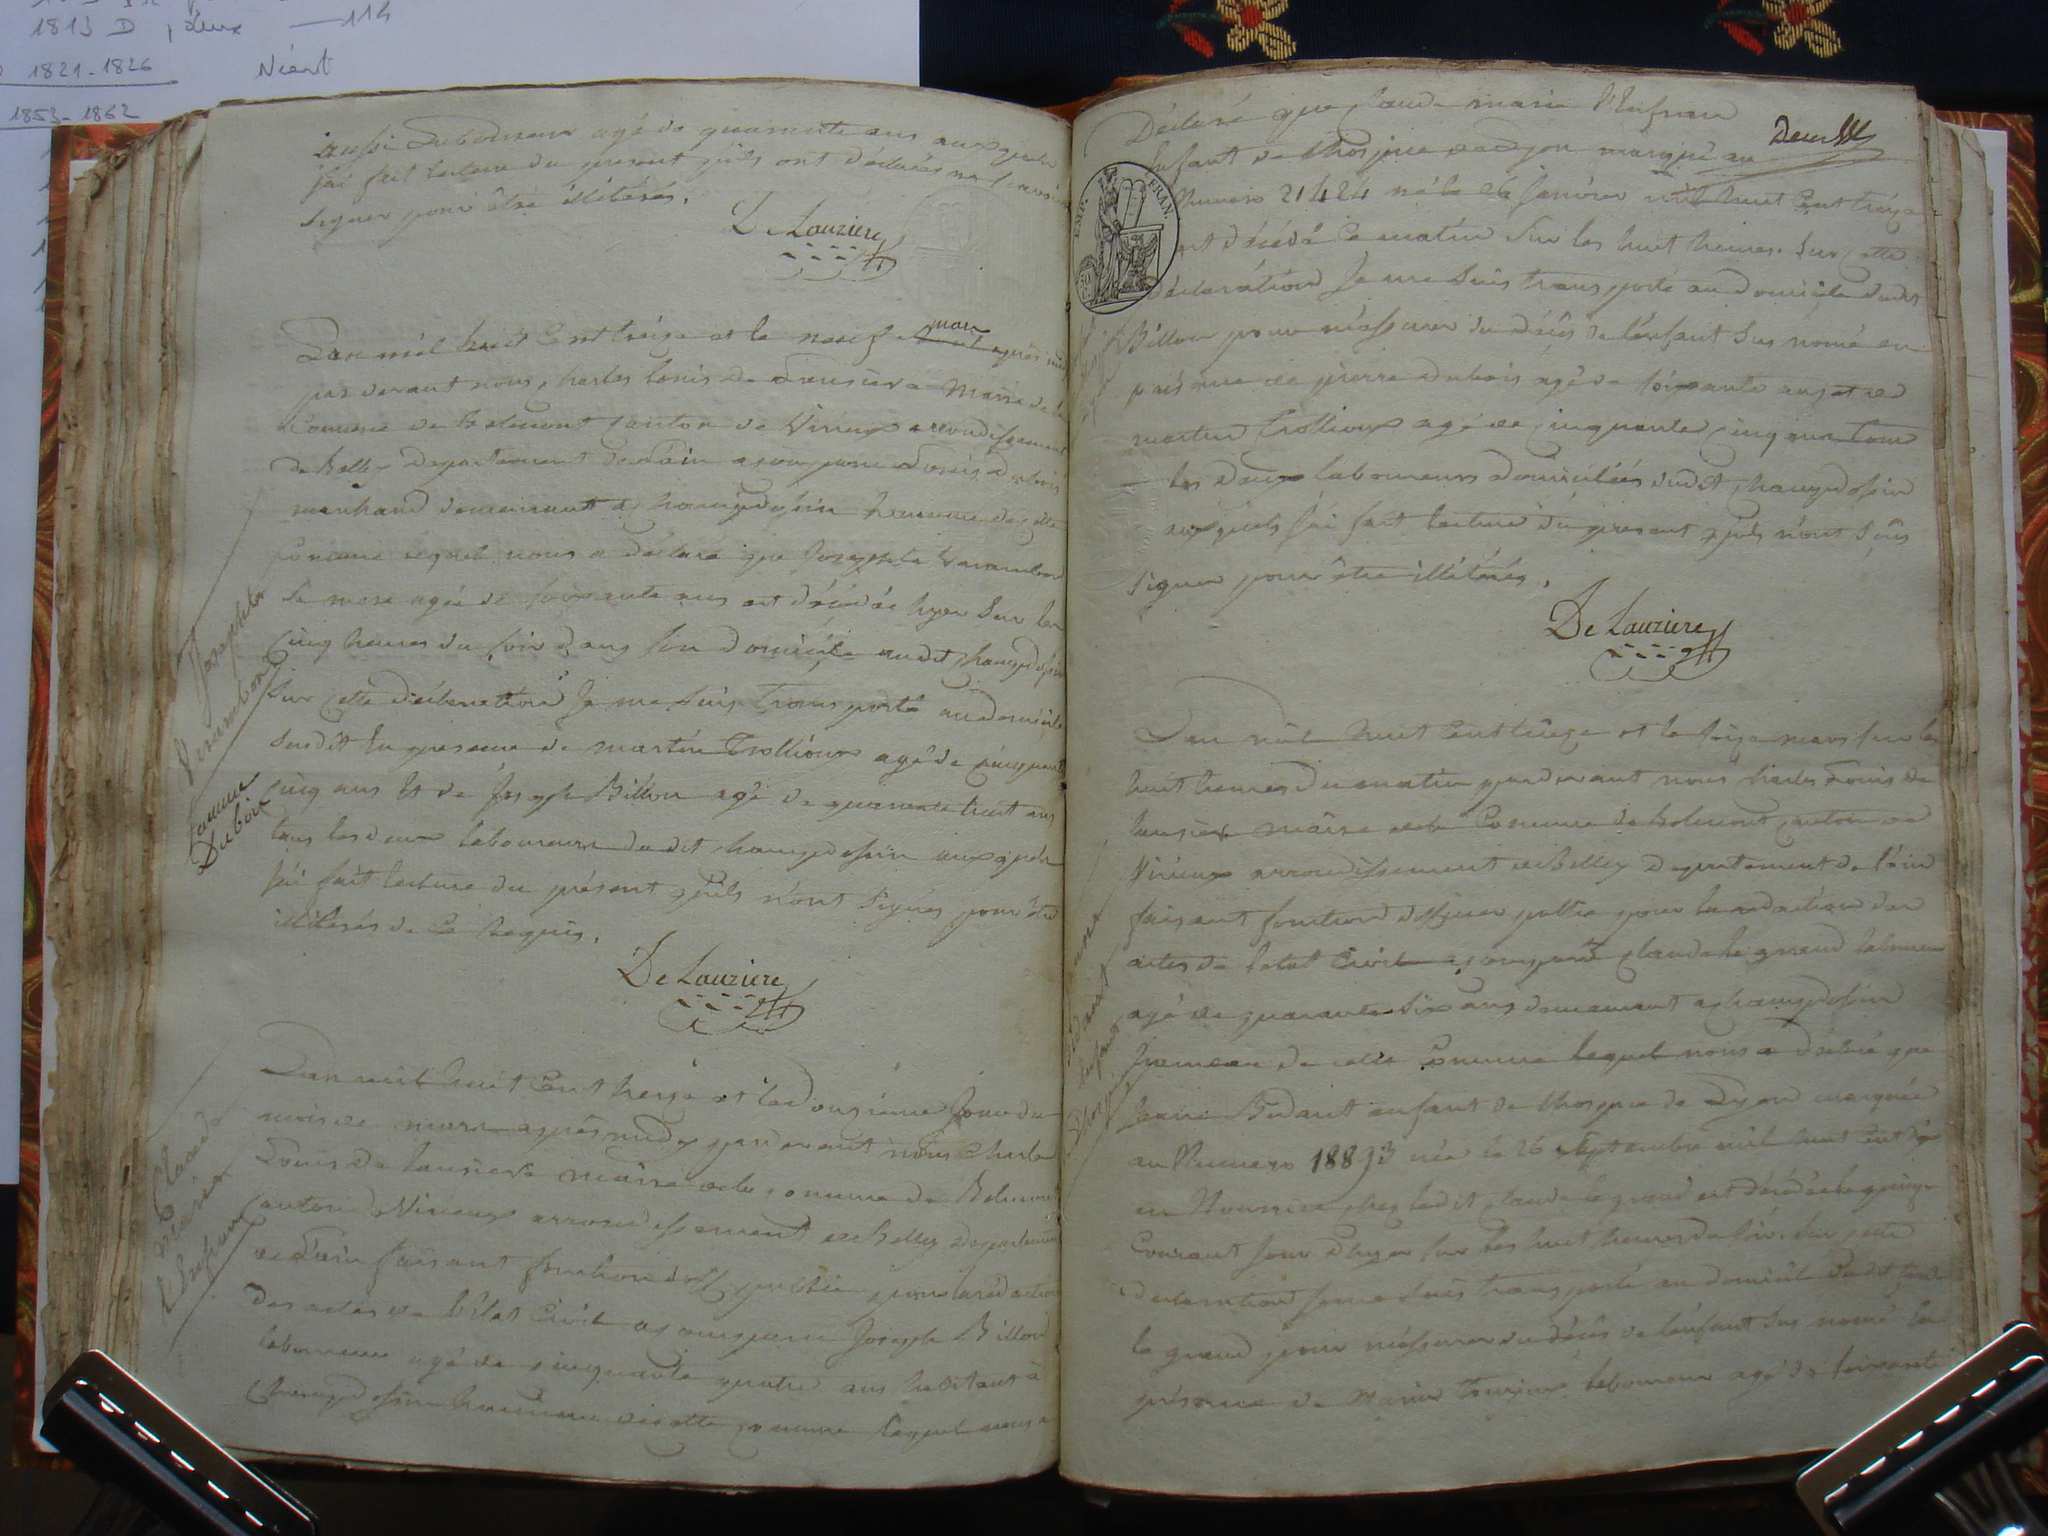 1813 D, deux — 114
1821-1826 Néant
1853-1862
aussi laboureur agé de quarente ans auxquels
j'ai fait lecture du present qu'ils ont déclarés ne savoir
signer pour être illiterés.
De Lauziere
L'an mil huit cent treize et le neuf mars après midi
par devant nous Charles Louis de Lauziere Maire de la
Comune de Belmont canton de Virieux arrondissement
de Belley departement de l'ain a comparu Dubois
marchand demeurant a champdossin hameau de cette
Comune lequel nous a déclaré que Josephte Varambon
sa mere agée de soixante ans est décédée hyer sur les
cinq heures du soir dans son domicile audit champdossin
Sur cette déclaration Je me suis transporté au domicile
susdit en presence de martin Trollioux agé de cinquante
cinq ans et de Joseph Billon agé de quarente huit ans
tous les deux laboureurs dudit champdossin auxquels
j'ai fait lecture du présent qu'ils n'ont signés pour être
illiterés de ce Requis.
De Lauziere
Josephte
Varambon
femme
Dubois
L'an mil huit cent treize et le douzième jour du
mois de mars après midy par devant nous Charle
Louis de lauziere maire de la comune de Belmont
canton de Virieux arrondissement de Belley departement
de L'ain faisant fonction d'off public pour la rédaction
des actes de l'état Civil a comparu Joseph Billon
laboureur agé de cinquante quatre ans habitant à
Champdossin hameau de cette comune lequel nous a
Claude
marie
Déclaré que Claude marie
Enfant de l'hospice de Lyon marqué au
Numero 21424 né le 26 Janvier mil huit cent treize
est décédé ce matin sur les huit heures. Sur cette
déclaration Je me suis transporté au domicile dudit
Billon pour m'assurer du décès de l'enfant sus nomé en
présence de pierre dubois agé de soixante ans et de
martin Trollioux agé de cinquante cinq ans tous
les deux laboureurs domiciliés dudit champdossin
auxquels j'ai fait lecture du present qu'ils n'ont sçus
signer pour être illiterés.
De Lauziere
EMP. FRAN.
L'an mil huit cent treize et le seize mars sur les
huit heures du matin par devant nous Charles Louis de
lauziere maire de la Comune de belmont canton de
Virieux arrondissement de Belley departement de l'ain
faisant fonction d'officier public pour la rédaction des
actes de l'etat Civil a comparu claude le grand laboureur
agé de quarante six ans demeurant a champdossin
hameau de cette Comune lequel nous a déclaré que
Bidant enfant de l'hospice de Lyon marquée
au Numero 18893 née le 26 Septembre mil huit cent
en Nourrice chez ledit claude le grand est décédée le quinze
Courant jour d'hyer sur les huit heures du soir. Sur cette
déclaration je me suis transporté au domicile dudit claude
le grand pour m'assurer du décès de l'enfant sus nomé en
présence de laboureur agé de soixante